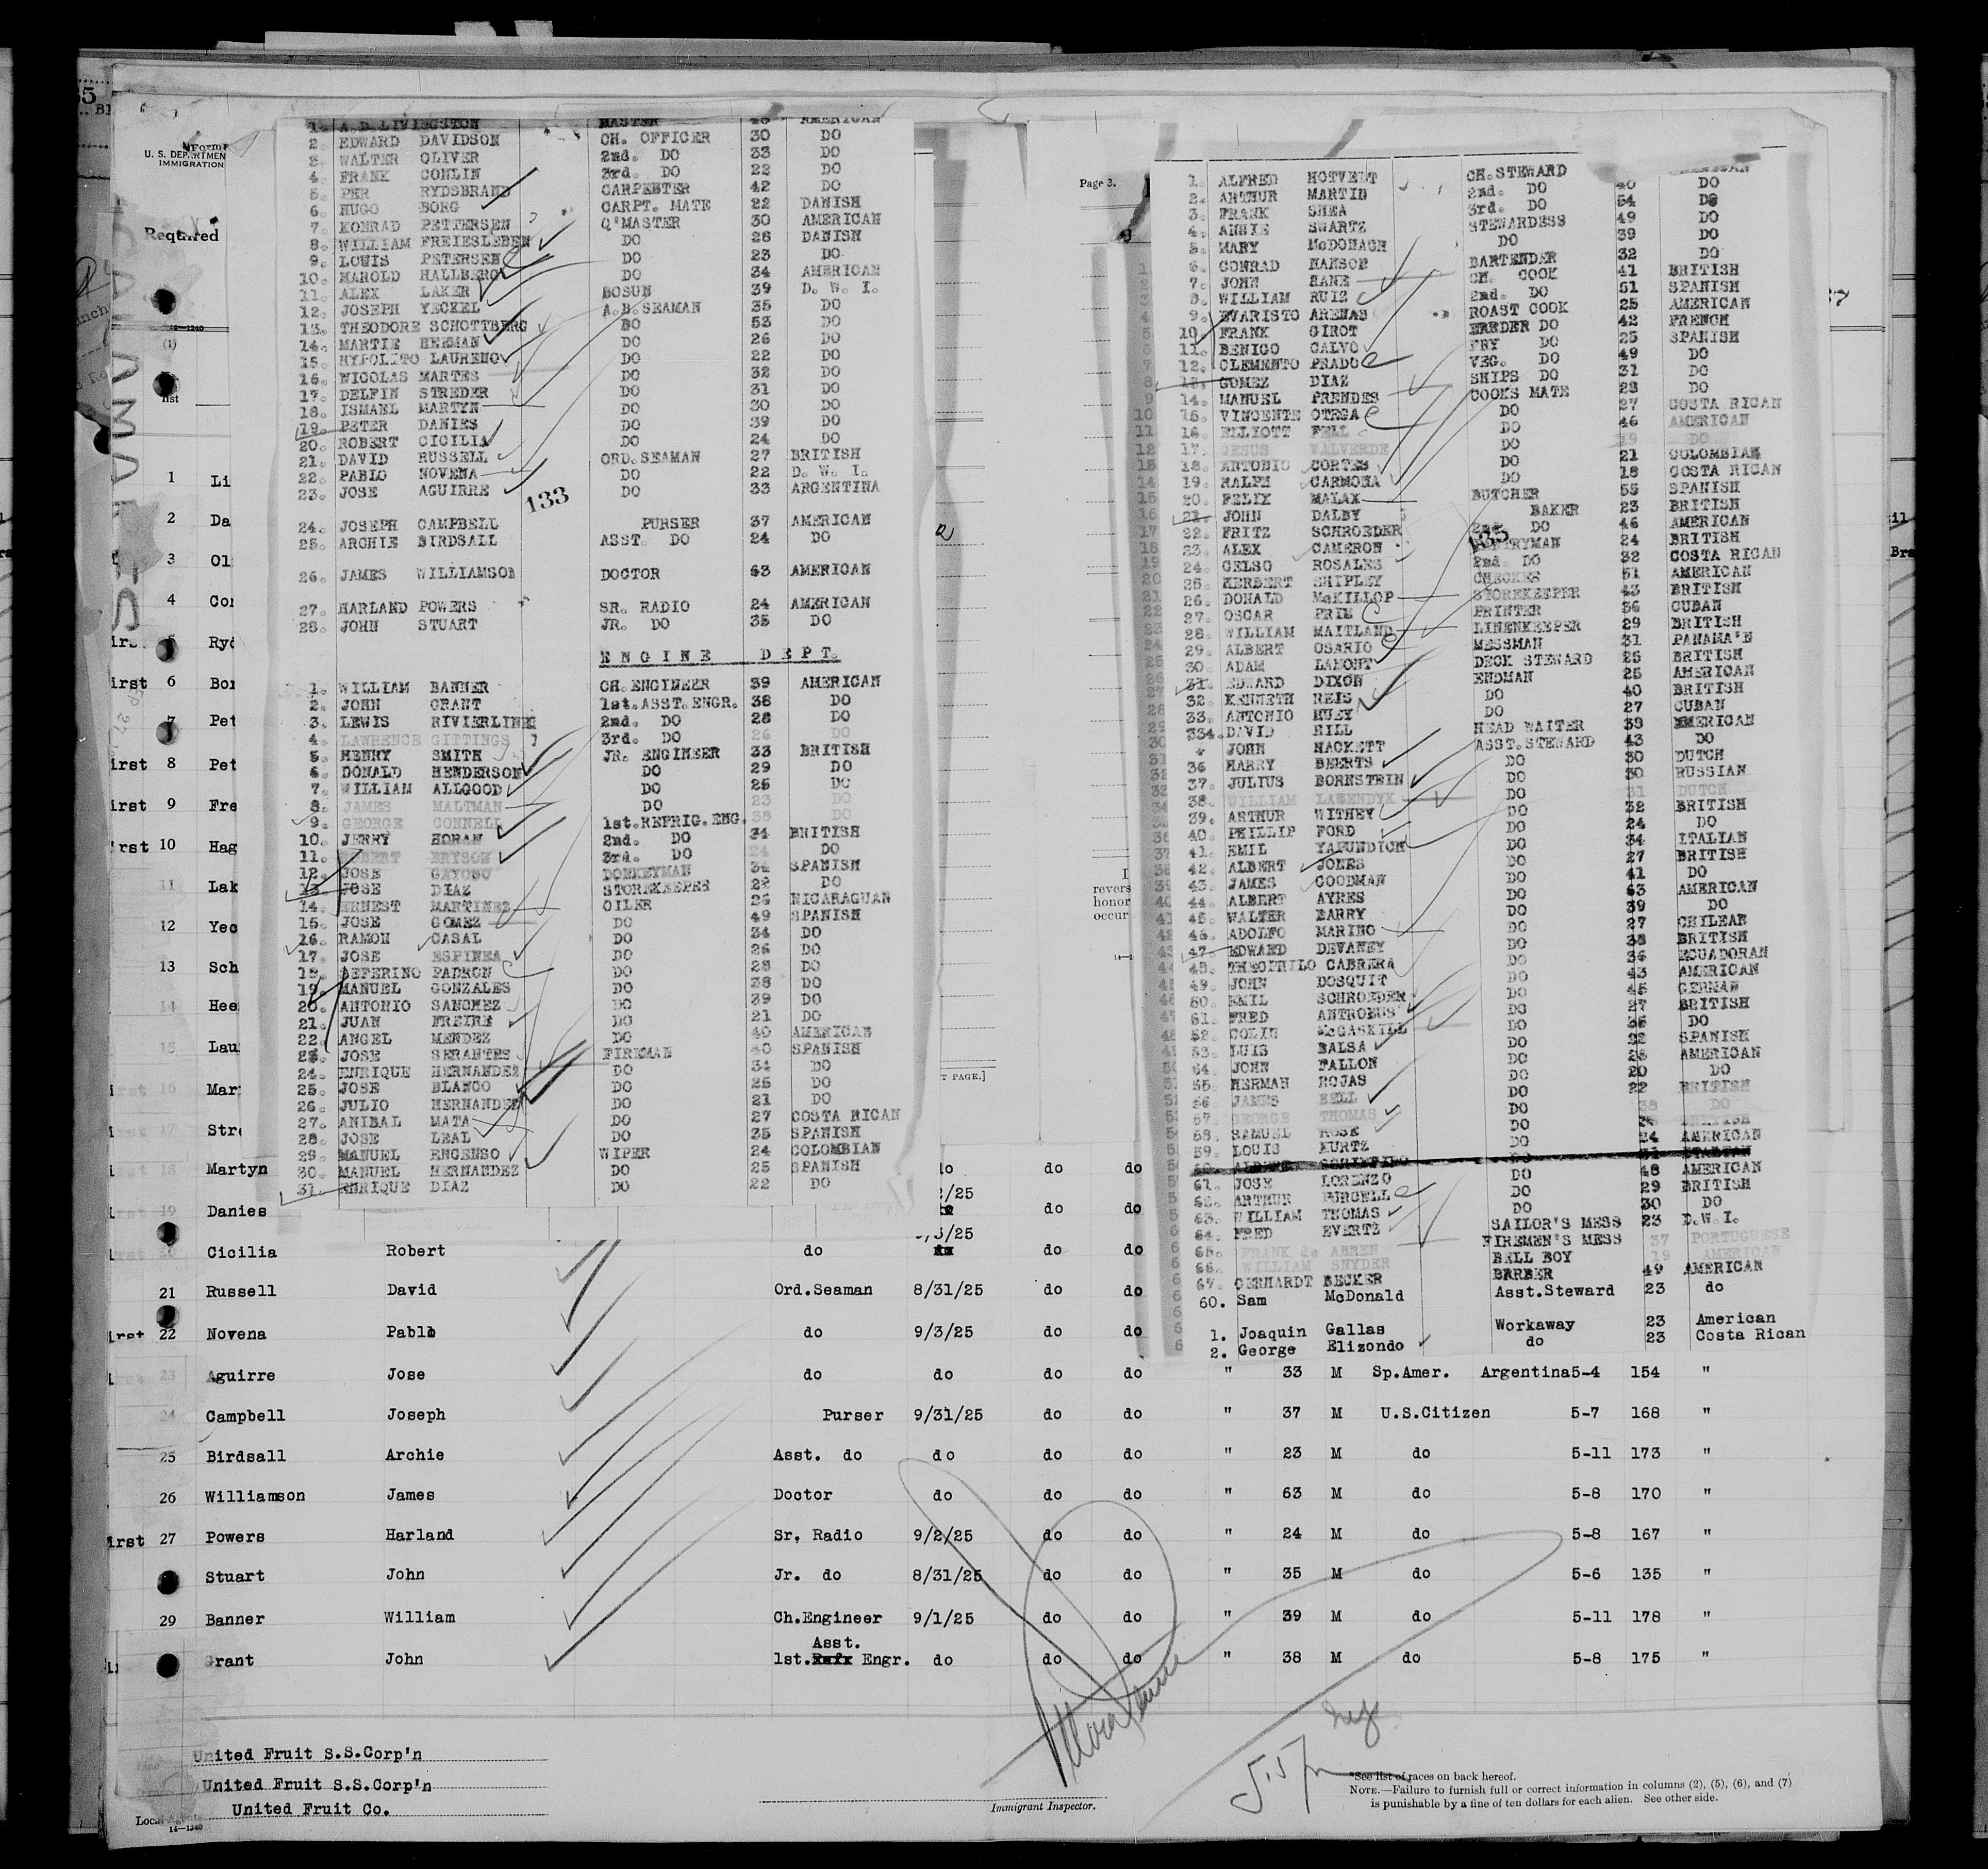 Form
U. S. DEPARTMEN
IMMIGRATION
Required
14-1240
(1)
list
1. A.B. LIVINGSTON MASTER AMERICAN
2. EDWARD DAVIDSON CH. OFFICER 30 DO
3. WALTER OLIVER 2nd. DO 33 DO
4. FRANK CONLIN 3rd. DO 22 DO
5. PER RYDSBRAND CARPENTER 42 DO
6. HUGO BORG CARPT. MATE 22 DANISH
7. KONRAD PETTERSEN Q'MASTER 30 AMERICAN
8. WILLIAM FREIESLEBEN DO 28 DANISH
9. LOUIS PETERSEN DO 23 DO
10. HAROLD HALLBERG DO 34 AMERICAN
11. ALEX LAKER BOSUN 39 D. W. I.
12. JOSEPH YECKEL A.B. SEAMAN 35 DO
13. THEODORE SCHOTTBERG DO 53 DO
14. MARTIE HEEMAN DO 26 DO
15. HYPOLITO LAURENO DO 22 DO
16. WICOLAS MARTES DO 32 DO
17. DELFIN STREDER DO 31 DO
18. ISMAEL MARTYN DO 30 DO
19. PETER DANIES DO 39 DO
20. ROBERT CICILIA DO 24 DO
21. DAVID RUSSELL ORD. SEAMAN 27 BRITISH
22. PABLO NOVENA DO 22 D. W. I.
23. JOSE AGUIRRE DO 33 ARGENTINA
133
24. JOSEPH CAMPBELL PURSER 37 AMERICAN
25. ARCHIE BIRDSALL ASST. DO 24 DO
26. JAMES WILLIAMSON DOCTOR 63 AMERICAN
27. HARLAND POWERS SR. RADIO 24 AMERICAN
28. JOHN STUART JR. DO 35 DO
ENGINE DEPT.
1. WILLIAM BANNER CH. ENGINEER 39 AMERICAN
2. JOHN GRANT 1st. ASST. ENGR. 38 DO
3. LEWIS RIVIERLINE 2nd. DO 28 DO
4. LAWRENCE GITTINGS 3rd. DO 26 DO
5. HENRY SMITH JR. ENGINEER 33 BRITISH
6. DONALD HENDERSON DO 29 DO
7. WILLIAM ALLGOOD DO 25 DO
8. JAMES MALTMAN DO 23 DO
9. GEORGE CONNELL 1st. REFRIG. ENG. 38 DO
10. JERRY HORAN 2nd. DO 34 BRITISH
11. ROBERT BRYSON 3rd. DO 24 DO
12. JOSE GAYOSO DONKEYMAN 34 SPANISH
13. JOSE DIAZ STOREKEEPER 22 DO
14. ERNEST MARTINEZ OILER 26 NICARAGUAN
15. JOSE GOMEZ DO 49 SPANISH
16. RAMON CASAL DO 34 DO
17. JOSE ESPINEA DO 26 DO
18. SEFERINO PADRON DO 28 DO
19. MANUEL GONZALES DO 38 DO
20. ANTONIO SANCHEZ DO 39 DO
21. JUAN FREIRE DO 21 DO
22. ANGEL MENDEZ DO 40 AMERICAN
23. JOSE SERANTES FIREMAN 40 SPANISH
24. ENRIQUE HERNANDEZ DO 34 DO
25. JOSE BLANCO DO 25 DO
26. JULIO HERNANDEZ DO 21 DO
27. ANIBAL MATA DO 27 COSTA RICAN
28. JOSE LEAL DO 35 SPANISH
29. MANUEL ENCENSO WIPER 24 COLOMBIAN
30. MANUEL HERNANDEZ DO 25 SPANISH
31. ENRIQUE DIAZ DO 22 DO
Page 3.
1. ALFRED HOTVEDT CH. STEWARD 40
2. ARTHUR MARTIN 2nd. DO 54 DO
3. FRANK SHEA 3rd. DO 49 DO
4. ANNIE SWARTZ STEWARDESS 39 DO
5. MARY McDONAGH DO 32 DO
6. CONRAD HANSON BARTENDER 41 BRITISH
7. JOHN HANE CH. COOK 51 SPANISH
8. WILLIAM RUIZ 2nd. DO 25 AMERICAN
9. EVARISTO ARENAS ROAST COOK 42 FRENCH
10. FRANK GIROT DO 25 SPANISH
11. BENIGO CALVO FRY DO 49 DO
12. CLEMENTO PRADO VEG. DO 31 DO
13. GOMEZ DIAZ SHIPS DO 28 DO
14. MANUEL PRENDES COOKS MATE 27 COSTA RICAN
15. VINCENTE OTEGA DO 46 AMERICAN
16. ELLIOTT FELL DO 19 DO
17. JESUS VALVERDE DO 21 COLOMBIAN
18. ANTONIO CORTES DO 18 COSTA RICAN
19. RALPH CARMONA DO 55 SPANISH
20. FELIX MALAX BUTCHER 23 BRITISH
21. JOHN DALBY BAKER 46 AMERICAN
22. FRITZ SCHROEDER 2nd. DO 24 BRITISH
23. ALEX CAMERON PANTRYMAN 32 COSTA RICAN
135
24. CELSO ROSALES 2nd. DO 51 AMERICAN
25. HERBERT SHIPLEY CHECKER 43 BRITISH
26. DONALD McKILLOP STOREKEEPER 36 CUBAN
27. OSCAR PRIM PRINTER 29 BRITISH
28. WILLIAM MAITLAND LINENKEEPER 31 PANAMA'N
29. ALBERT OSARIO MESSMAN 25 BRITISH
30. ADAM LAMONT DECK STEWARD 25 AMERICAN
31. EDWARD DIXON ENDMAN 40 BRITISH
32. KENNETH REIS DO 27 CUBAN
33. ANTONIO HUEY DO 39 AMERICAN
334. DAVID HILL HEAD WAITER 43 DO
JOHN HACKETT ASST. STEWARD 30 DUTCH
36 HARRY BEERTS DO 30 RUSSIAN
37. JULIUS BORNSTEIN DO 31 DUTCH
38. WILLIAM LABENDYK DO 32 BRITISH
39. ARTHUR WITHEY DO 24 DO
40. PHILLIP FORD DO 34 ITALIAN
41. EMIL YAFUNDICH DO 27 BRITISH
42. ALBERT JONES DO 41 DO
43. JAMES GOODMAN DO 63 AMERICAN
44. ALBERT AYRES DO 39 DO
45. WALTER BARRY DO 27 CHILEAN
46. ADOLFO MARINO DO 38 BRITISH
47. EDWARD DEVANEY DO 36 ECUADORAN
48. THEOPHILO CABRERA DO 43 AMERICAN
49. JOHN DOSQUIT DO 45 GERMAN
50. EMIL SCHROEDER DO 27 BRITISH
51. FRED ANTROBUS DO 36 DO
52. COLIN McGASKILL DO 22 SPANISH
53. LUIS BALSA DO 26 AMERICAN
54. JOHN FALLON DO 20 DO
55. HERMAN ROJAS DO 22 BRITISH
56. JAMES BELL DO 38 DO
57. GEORGE THOMAS DO BRITISH
58. SAMUEL ROSE DO 24 AMERICAN
59. LOUIS KURTZ DO
60. ALBERT DO 48 AMERICAN
61. JOSE LORENZO DO 29 BRITISH
62. ARTHUR PURCELL DO 30 DO
63. WILLIAM THOMAS DO
64. FRED EVERTZ SAILOR'S MESS 23 D.W.I.
65. FRANK de ABREN FIREMEN'S MESS 37 PORTUGUESE
66. WILLIAM SNYDER BELL BOY 19 AMERICAN
67. GERHARDT BECKER BARBER 49 AMERICAN
60. Sam McDonald Asst.Steward 23 do
1. Joaquin Gallas Workaway 23 American
2. George Elizondo do 23 Costa Rican
1 Li
2 Da
3 Ol
4 Con
5 Ryd
irst 6 Bor
7 Pet
irst 8 Pet
irst 9 Fre
rst 10 Hag
11 Lak
12 Yec
13 Sch
14 Hee
15 Lau
16 Mar
17 Stre
revers
honor
occur
T PAGE.]
18 Martyn do do do
19 Danies do do
20 Cicilia Robert do do do
21 Russell David Ord.Seaman 8/31/25 do do
irst 22 Novena Pablo do 9/3/25 do do
23 Aguirre Jose do do do do " 33 M Sp.Amer. Argentina 5-4 154 "
24 Campbell Joseph Purser 9/31/25 do do " 37 M U.S.Citizen 5-7 168 "
25 Birdsall Archie Asst. do do do do " 23 M do 5-11 173 "
26 Williamson James Doctor do do do " 63 M do 5-8 170 "
irst 27 Powers Harland Sr. Radio 9/2/25 do do " 24 M do 5-8 167 "
Stuart John Jr. do 8/31/25 do do " 35 M do 5-6 135 "
29 Banner William Ch.Engineer 9/1/25 do do " 39 M do 5-11 178 "
Asst.
Grant John 1st. Engr. do do do " 38 M do 5-8 175 "
United Fruit S.S.Corp'n
United Fruit S.S.Corp'n
United Fruit Co.
Local Agents
14-1240
Immigrant Inspector.
*See list of races on back hereof.
NOTE.—Failure to furnish full or correct information in columns (2), (5), (6), and (7)
is punishable by a fine of ten dollars for each alien. See other side.